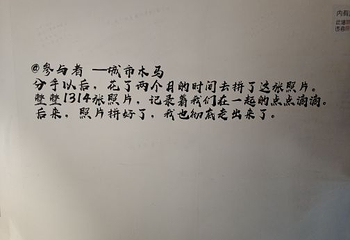 @参与者 一城市木马
分手以后，花了两个月的时间去拼了这张照片。
整整1314张照片，记录着我们在一起的点点滴滴。
后来，照片拼好了，我也彻底走出来了。